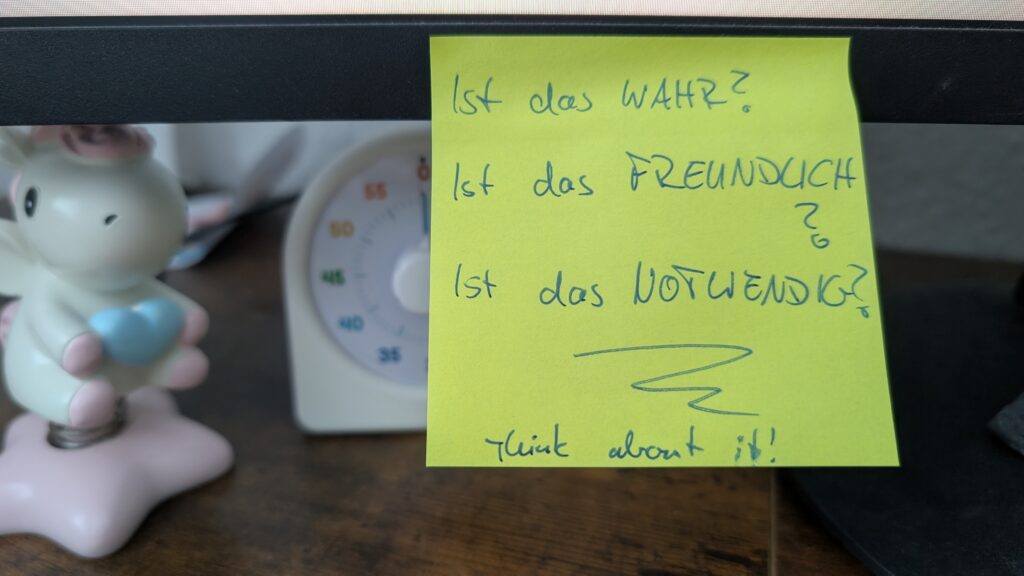 Ist das WAHR?
Ist das FREUNDLICH
?
Ist das NOTWENDIG?
Think about it!
0
55
50
45
40
35